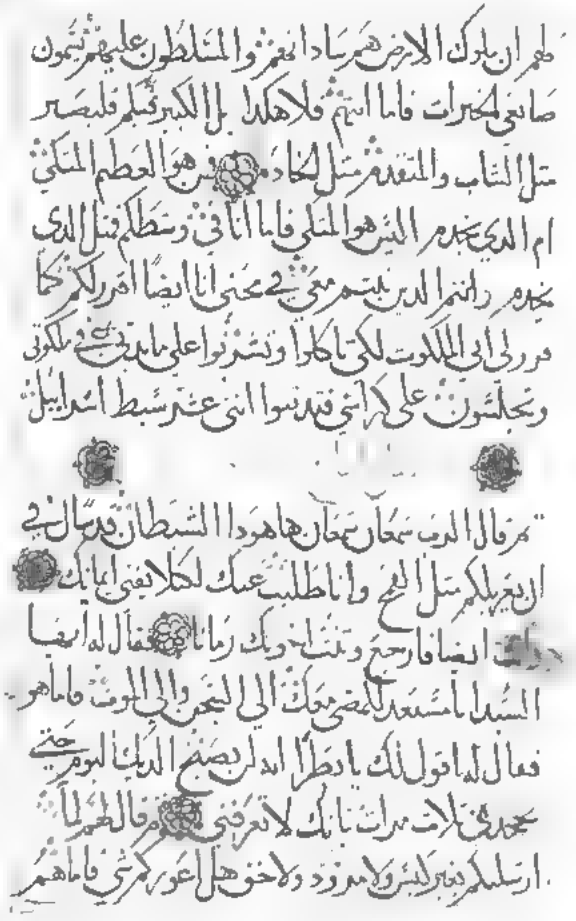 لهم ان ملوك الارض هم ساداتهم والمسلطون عليهم يسمون
صانعي الخيرات فاما انتم فلا هكدا بل الكبير فيكم فليصير
متل الشاب والمتقدم متل الخادم من هو العظيم المتكي
ام الدي يخدم اليس هو المتكي فاما انا في وسطكم فمتل الدي
يخدم وانتم الدين معي في محنتي انا ايضا اقرر لكم كما
قرر لي ابي الملكوت لكي تاكلوا وتشربوا على مايدتي في ملكوتي
وتجلسون على كراسي فتدينوا اتنى عشر سبط اسراييل
تم قال الرب سمعان سمعان ها هودا الشيطان قد سال في
ان يغربلكم متل القمح وانا طلبت عنك لكلا يفنى ايمانك
انت ايضا فارجع وتبت اخوتك زمانا فقال له ايضا
السيد انا مستعد للمضي معك الى السجن والى الموت فاما هو
فقال له اقول لك يا بطرا انه لن يصيح الديك اليوم حتى
تجحدني تلات مرات بانك لا تعرفني تم قال لهم لما
ارسلتكم بغير كيس ولا مزود ولا خف هل اعوزكم شي فاما هم